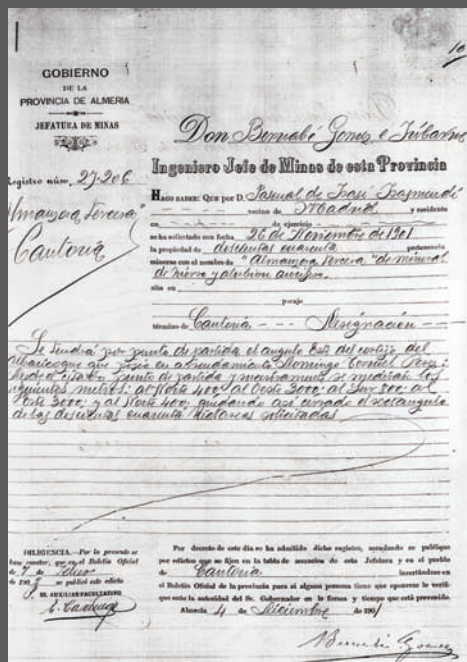 GOBIERNO
DE LA
PROVINCIA DE ALMERIA
JEFATURA DE MINAS
Registro núm. 27.206
"Almanzora Tercera"
Cantoria
Don Bernabé Gomez e Iribarne
Ingeniero Jefe de Minas de esta Provincia
HAGO SABER: Que por D. Pascual de
vecino de Madrid y residente
en de ejercicio
se ha solicitado con fecha 26 de Noviembre de 1901
la propiedad de doscientas cuarenta pertenencias
mineras con el nombre de "Almanzora Tercera" de mineral
de hierro y aluvión aurífero.
sita en
paraje
término de Cantoria Designación
Se tendrá por punto de partida el angulo Este del cortijo del
que posee en arrendamiento Domingo
punto de partida y se medirán los
siguientes metros: al Norte 400, al Oeste 3000, al Sur 800, al
Este 3000, y al Norte 400, quedando asi cerrado el rectangulo
de las doscientas cuarenta hectareas solicitadas
DILIGENCIA.—Por la presente se
hace constar, que en el Boletín Oficial
de 7 de Enero
de 190 se publicó este edicto
EL AUXILIAR FACULTATIVO
Por decreto de este dia se ha admitido dicho registro, mandando se publique
por edictos que se fijen en la tabla de anuncios de esta Jefatura y en el pueblo
de Cantoria insertándose en
el Boletin Oficial de la provincia para si alguna persona tiene que oponerse lo verifi-
que ante la autoridad del Sr. Gobernador en la forma y tiempo que está prevenido.
Almeria 4 de Diciembre de 1901
Bernabé Gomez